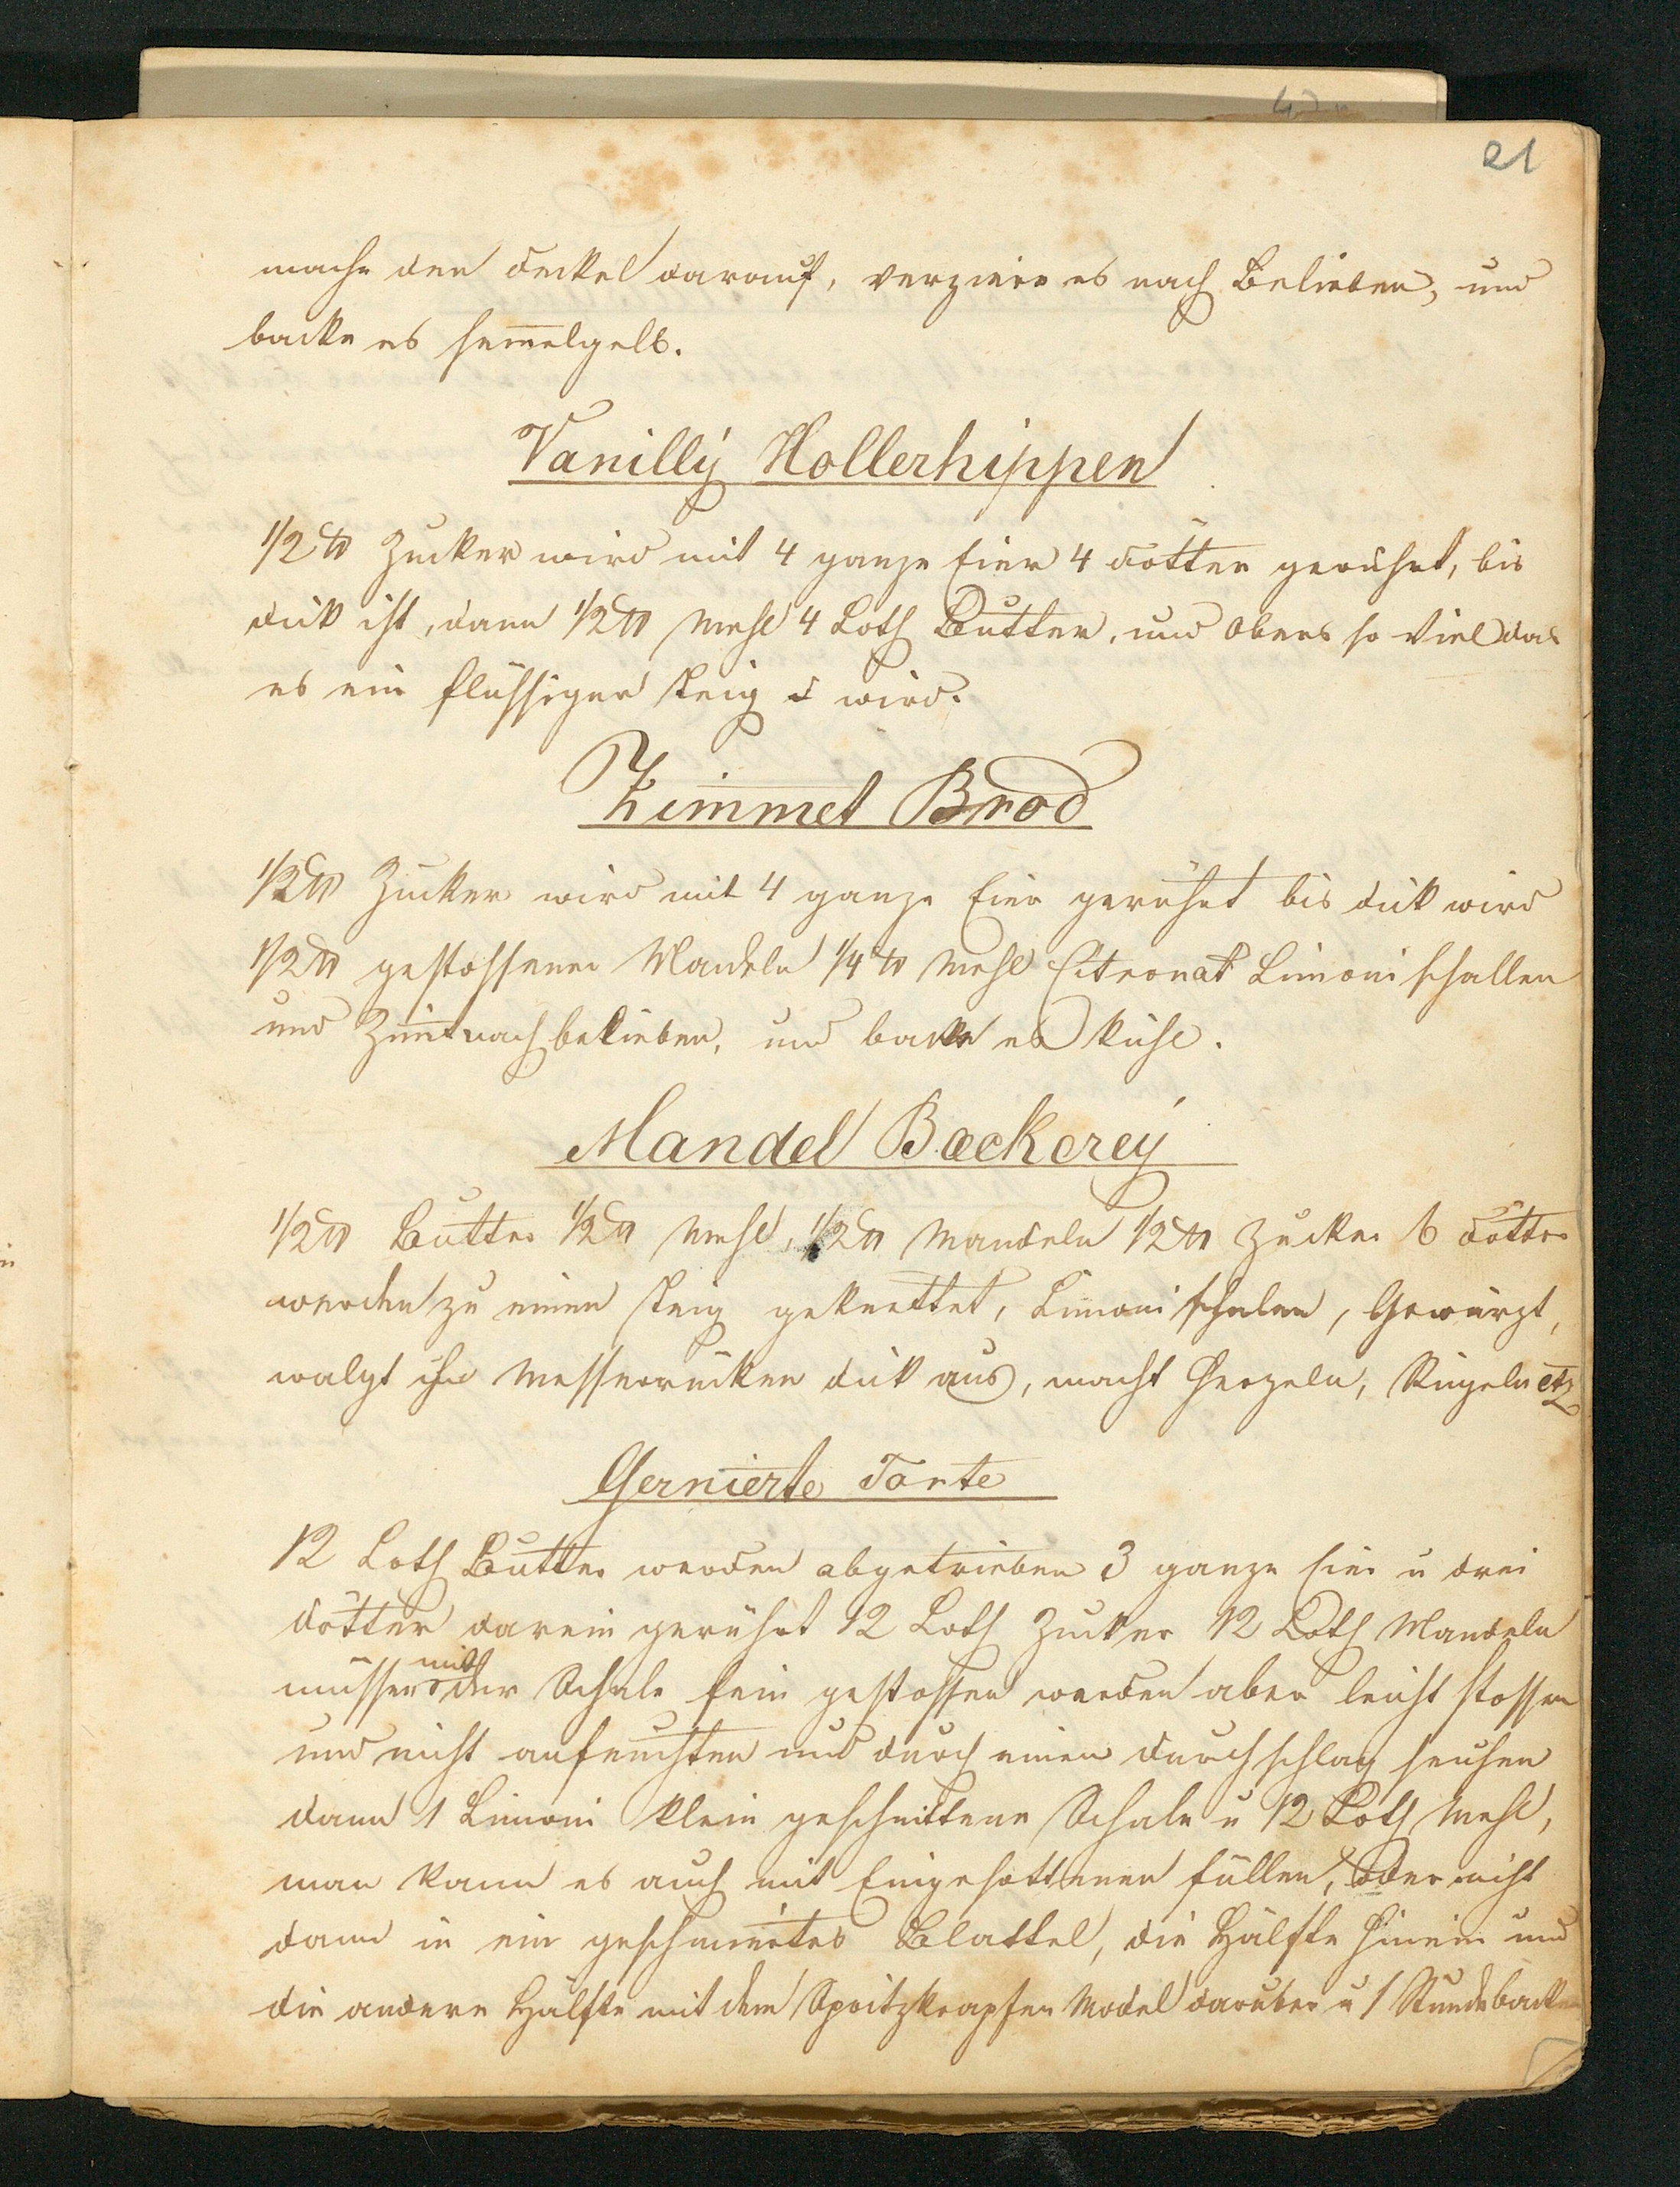 21
mache den Deckel darauf, verziere es nach Belieben, und
backe es sem̅elgelb.
Vanillÿ Hollerhippen
1/2 ℔ Zucker wird mit 4 ganze Eier 4 Dötter gerührt, bis
dick ist, dann 1/2 ℔ Mehl 4 Loth Butter, und Obers so Viel das
es ein flüssiger Teig wird.
Zimmet Brod
1/2 ℔ Zucker wird mit 4 ganze Eier gerührt bis dick wird
1/2 ℔ gestossener Mandeln 1/4 ℔ Mehl Citronat Limoni schallen
und Zim̅t nach belieben, und backe es kühl.
Mandel Bæckereÿ
1/2 ℔ Butter 1/2 ℔ Mehl, 1/2 ℔ Mandeln 1/2 ℔ Zucker 6 Dötter
werden zu einen Teig geknettet, Limonischalen, Gewürzt,
walgt ihn Messerrücken dick aus, macht Herzeln, Ringeln etz
Gernierte Torte
12 Loth Butter werden abgetrieben 3 ganze Eier u drei
Dötter darein gerührt 12 Loth Zucker 12 Loth Mandeln
müssen mit der Schale fein gestossen werden aber leicht stossen
und nicht anfeuchten und durch einen Durchschlag seuhen
dann 1 Limoni klein geschnittene Schale u 12 Loth Mehl,
man kann es auch mit Eingesottenen füllen, oder nicht
dann in ein geschmiertes Blattel, die Hälfte hinein und
die andere Hälfte mit dem Spritzkrapfen Model darüber u 1 Stunde backen